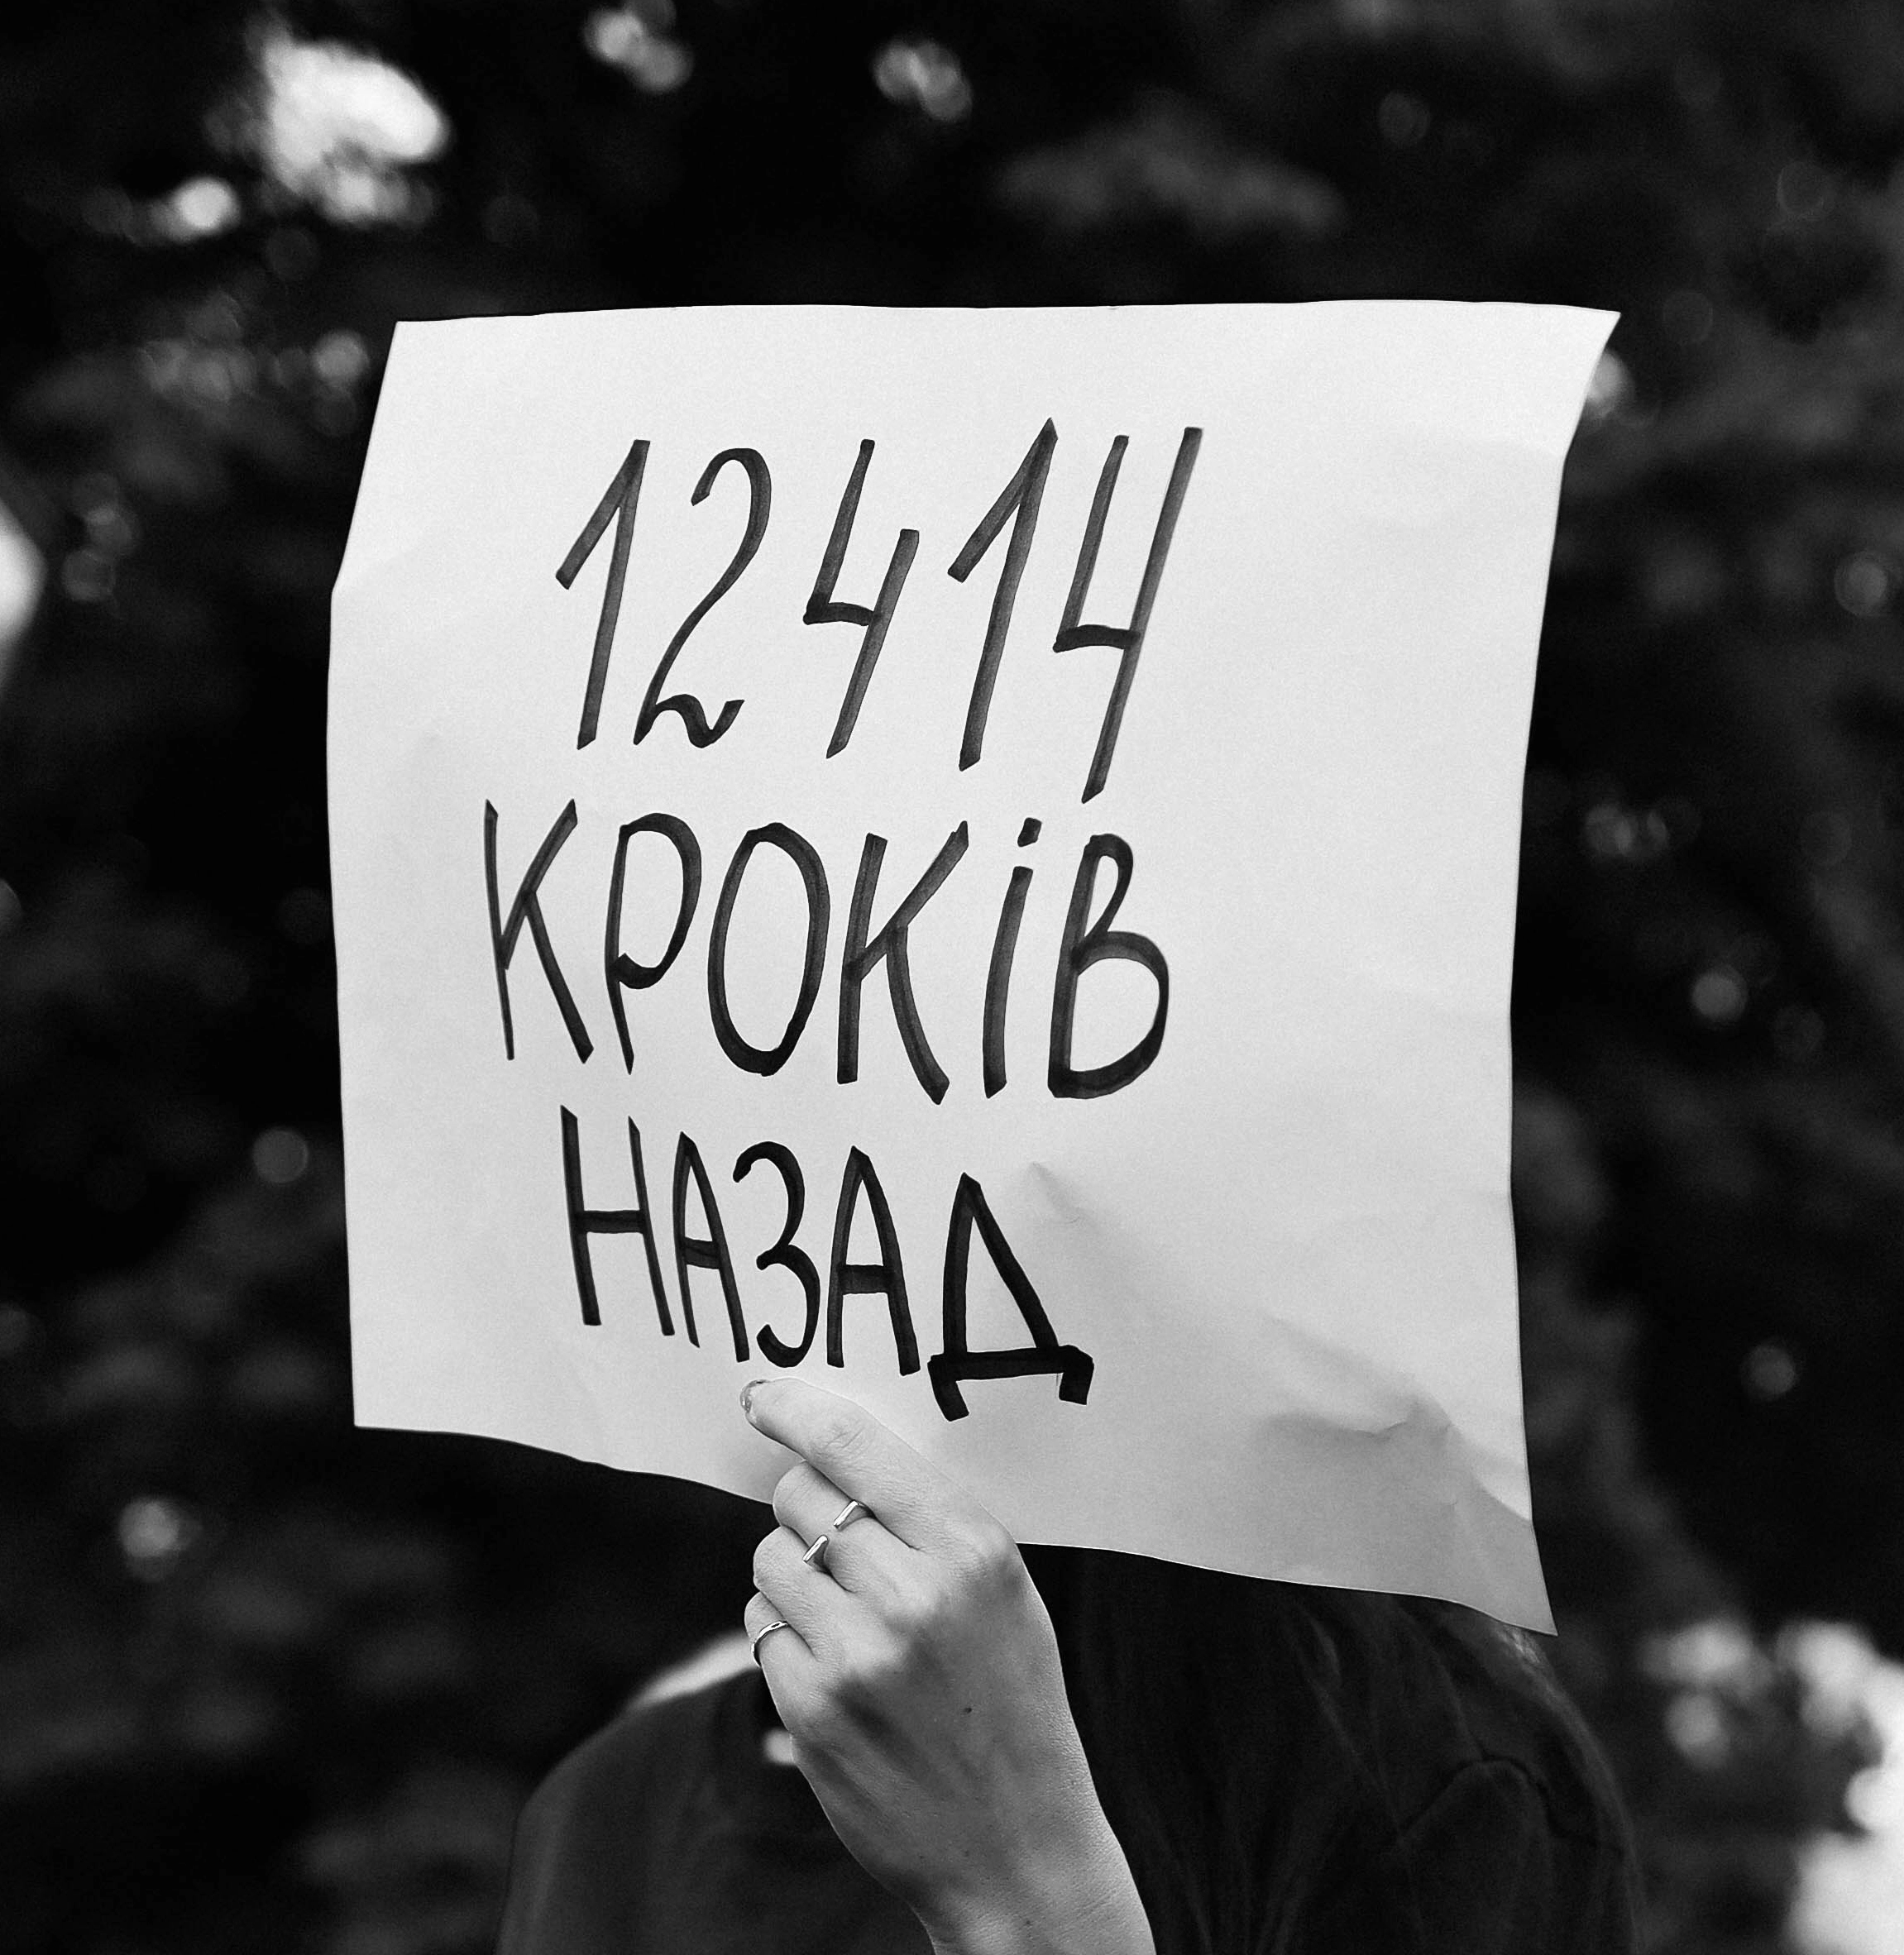 12414
КРОКіВ
НАЗАД